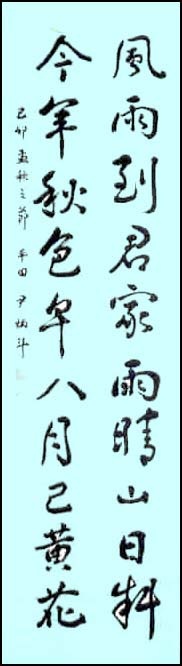 風雨到君家雨晴山日斜
今年秋色早八月已黃花
己卯孟秋之節 平田 尹炳斗